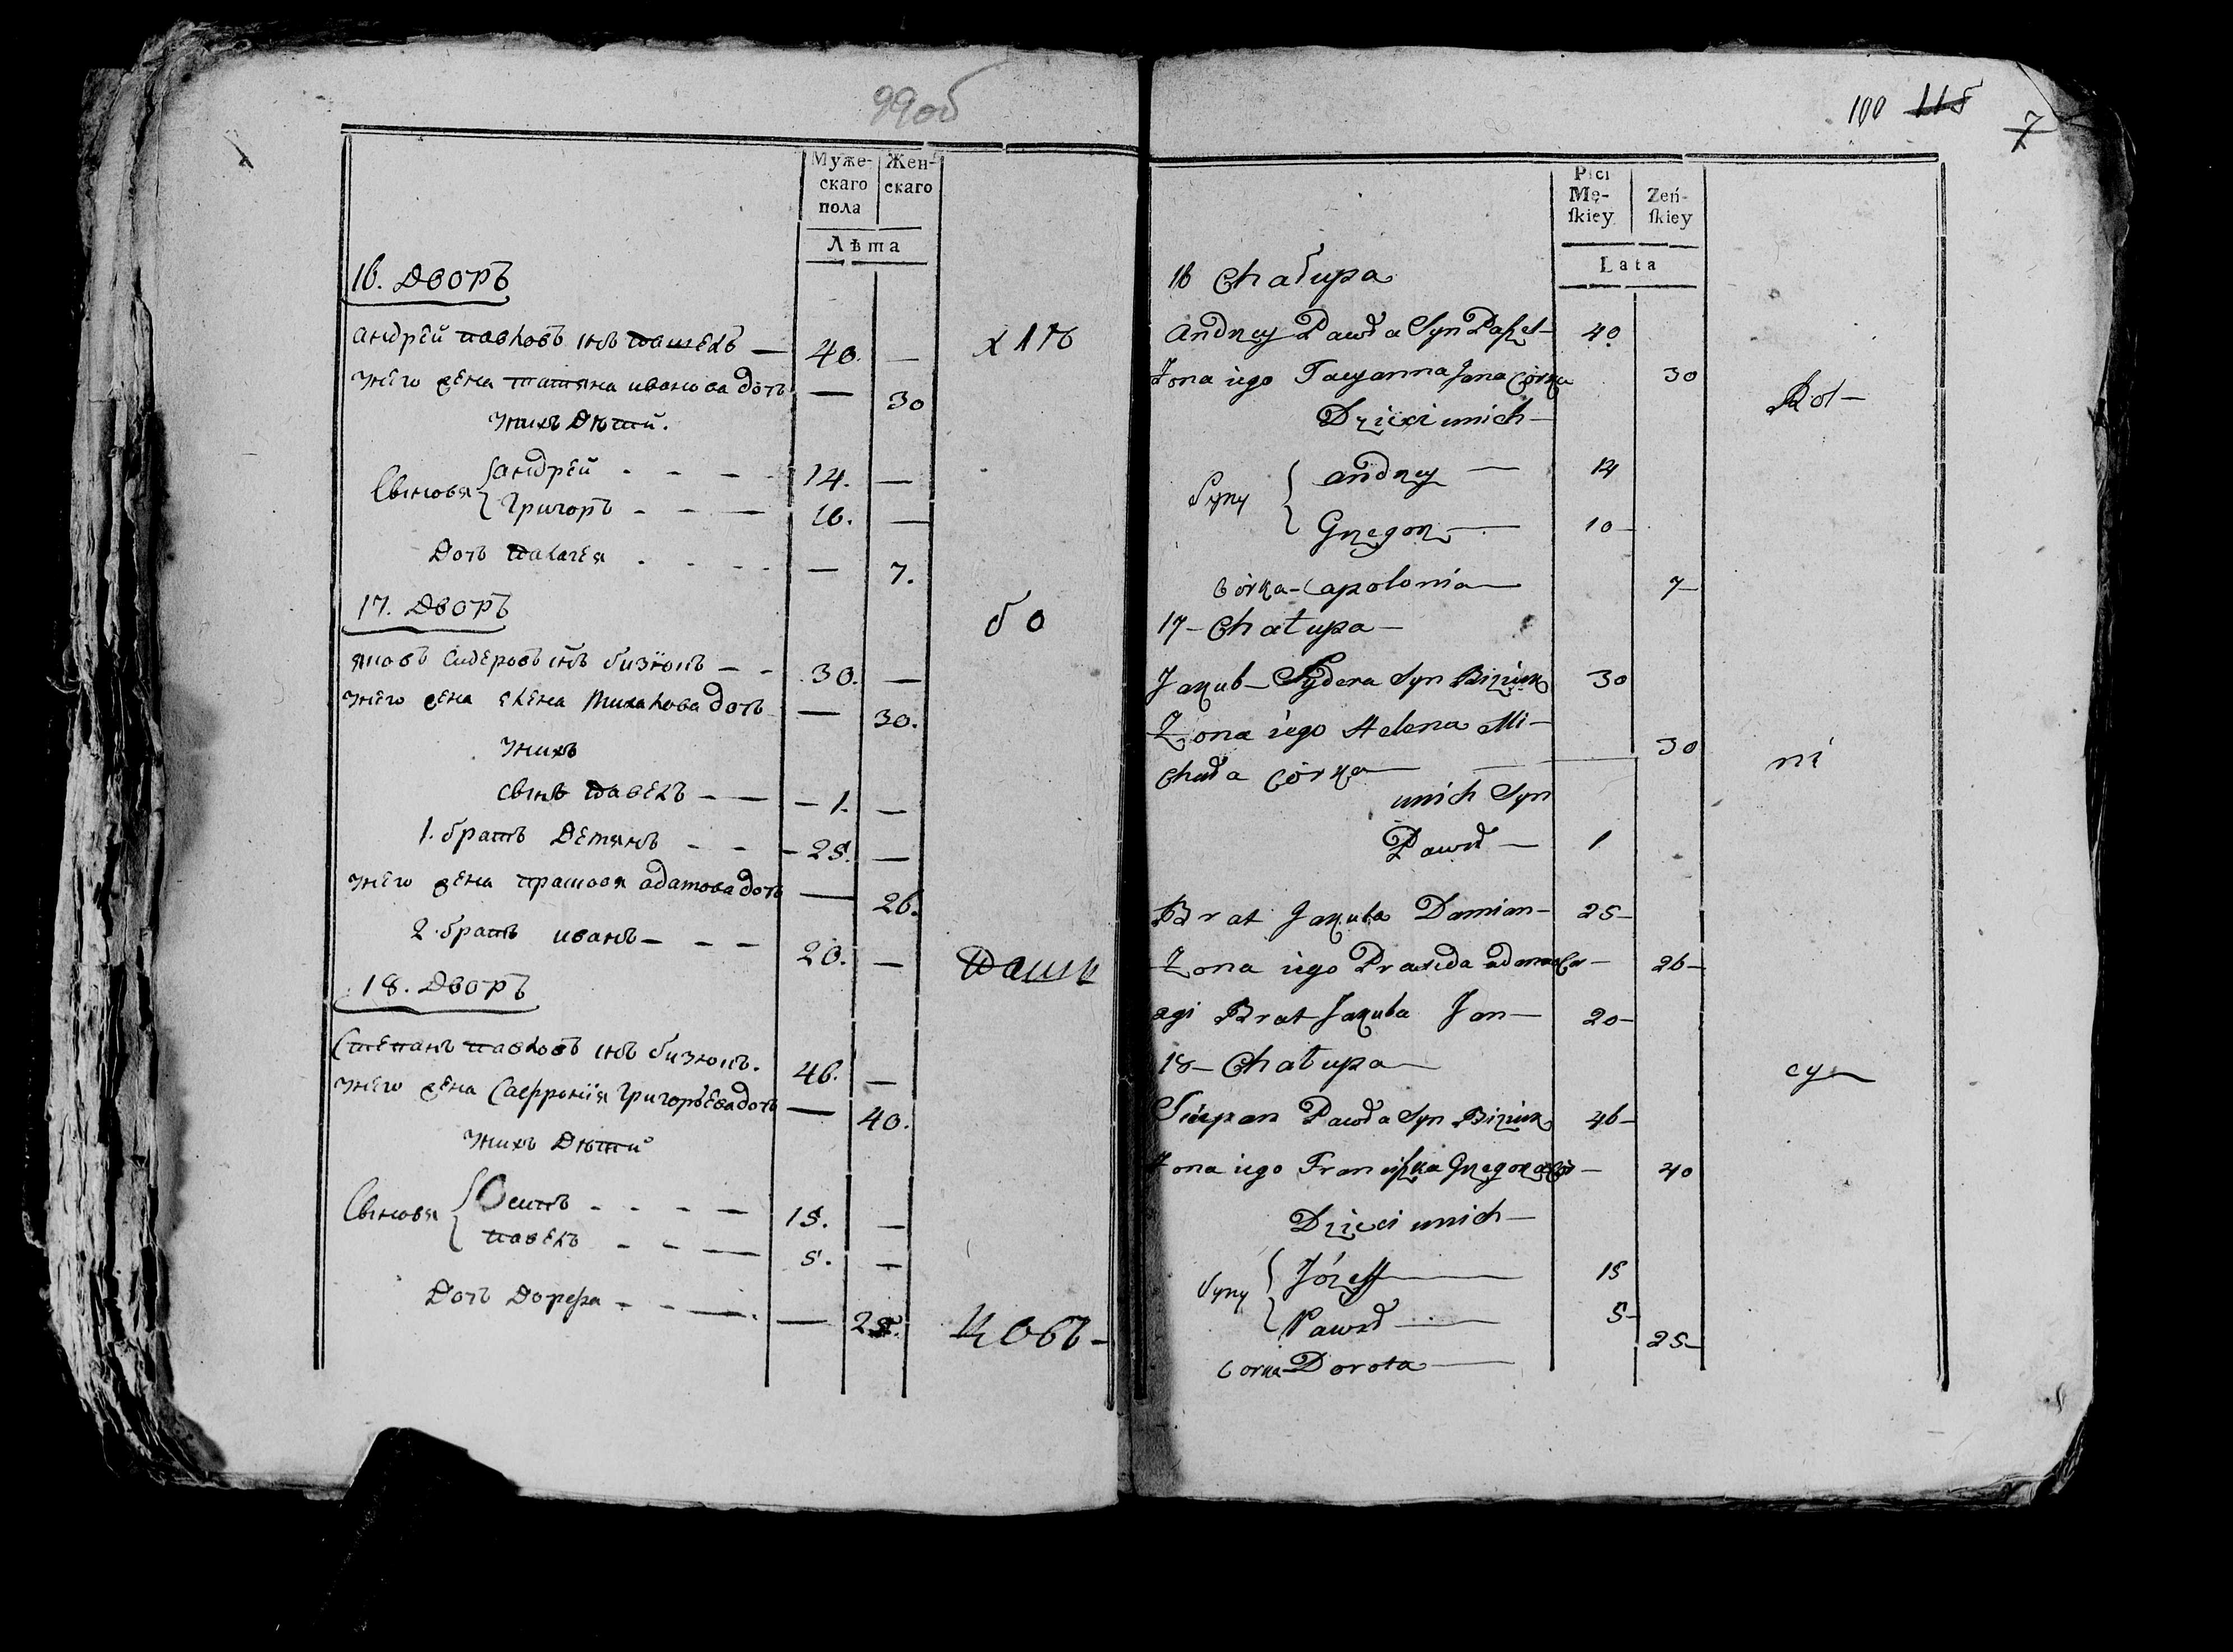 99об
Муже-
скаго
пола
Жен-
скаго
Лѣта
16. Дворъ
андрей павловъ снъ пашекъ — 40. —
унего жена татяна иванова дочь — 30
унихъ дѣтий.
Сыновя андрей - - - 14. —
Григоръ - - — 10. —
Дочь палагея - - - — 7.
17. Дворъ
яковъ сидеровъ снъ бизюкъ — - 30. —
унего жена елена михалова дочь — 30.
унихъ
сынъ павелъ - — - 1. —
1. братъ демянъ - - - 25. —
унего жена прасковя адамова дочь — 26.
2. братъ иванъ — - — 20. —
18. Дворъ
Степанъ павловъ снъ бизюкъ. 46. —
унего жена Сафрония Григоръева дочь — 40.
унихъ дѣтий
Сыновя Осипъ - - - — 15. —
павелъ - - — 5. —
Дочь Дорефа - - — — 25.
бо
100 115
7
Pici
Mę-
ſkiey
Zeń-
ſkiey
Lata
16 Chałupa
Andrzey Pawła Syn Paſzek 40
Zona iego Tacyanna Jana Córka 30
Dzieci unich —
Syny Andrzey — 14
Grzegorz — 10 —
Córka - Apolonia — 7 —
17 — Chałupa —
Jakub — Sydera Syn Biziuk 30
Zona iego Helena Mi-
chała Córka — 30
unich Syn
Paweł — 1
Brat Jakuba Damian — 25 —
Zona iego Adama — 26 —
2gi Brat Jakuba Jan — 20 —
18 — Chałupa —
Sciepan Pawła Syn Biziuk 46 —
Zona iego Franciſzka Grzegorza — 40
Dzieci unich —
Syny Józeff — 15
Paweł — 5 —
Corka Dorota — 25 —
ni